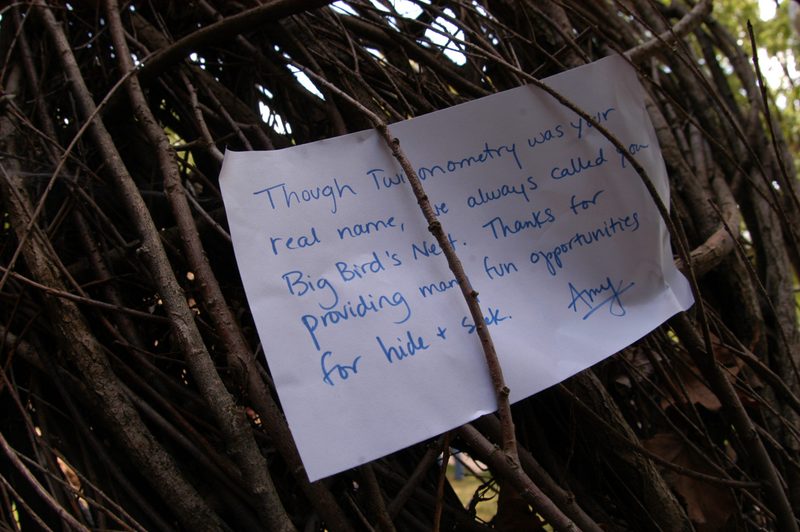 Though Twigonometry was your
real name, we always called you
Big Bird's Nest. Thanks for
providing many fun opportunities
for hide + seek.
Amy